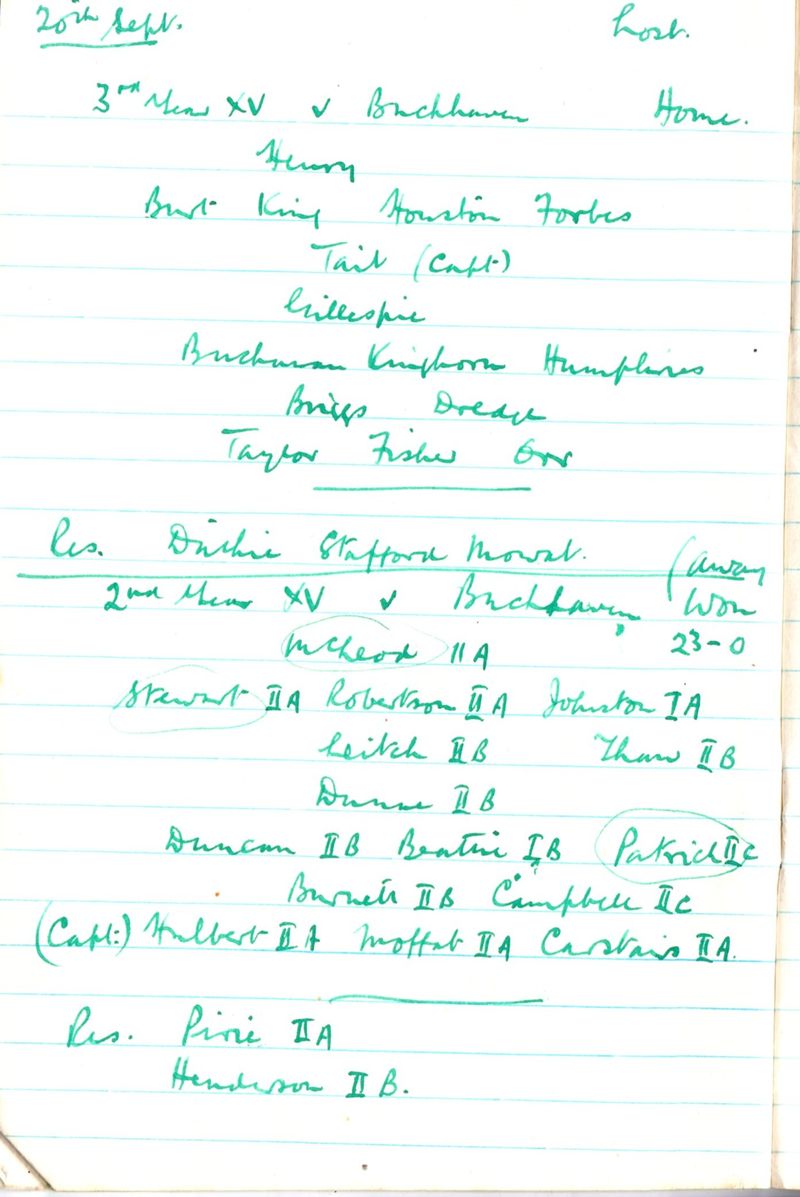 20th Sept. Lost.
3rd Year XV v Buckhaven Home.
Henry
Burt King Houston Forbes
Tait (Capt.)
Gillespie
Buchanan Kinghorn Humphries
Briggs Dredge
Taylor Fisher Orr
Res. Duthie Stafford Mowat.
(away
2nd Year XV v Buckhaven Won
23-0
McLeod IIA
Stewart IIA Robertson IIA Johnston IA
Leitch IIB Thaw IIB
Dunne IIB
Duncan IIB Beattie IB Patrick IIC
Burnett IIB Campbell IIC
(Capt:) Hulbert IIA Moffat IIA Carstairs IIA.
Res. Pirie IIA
Henderson IIB.